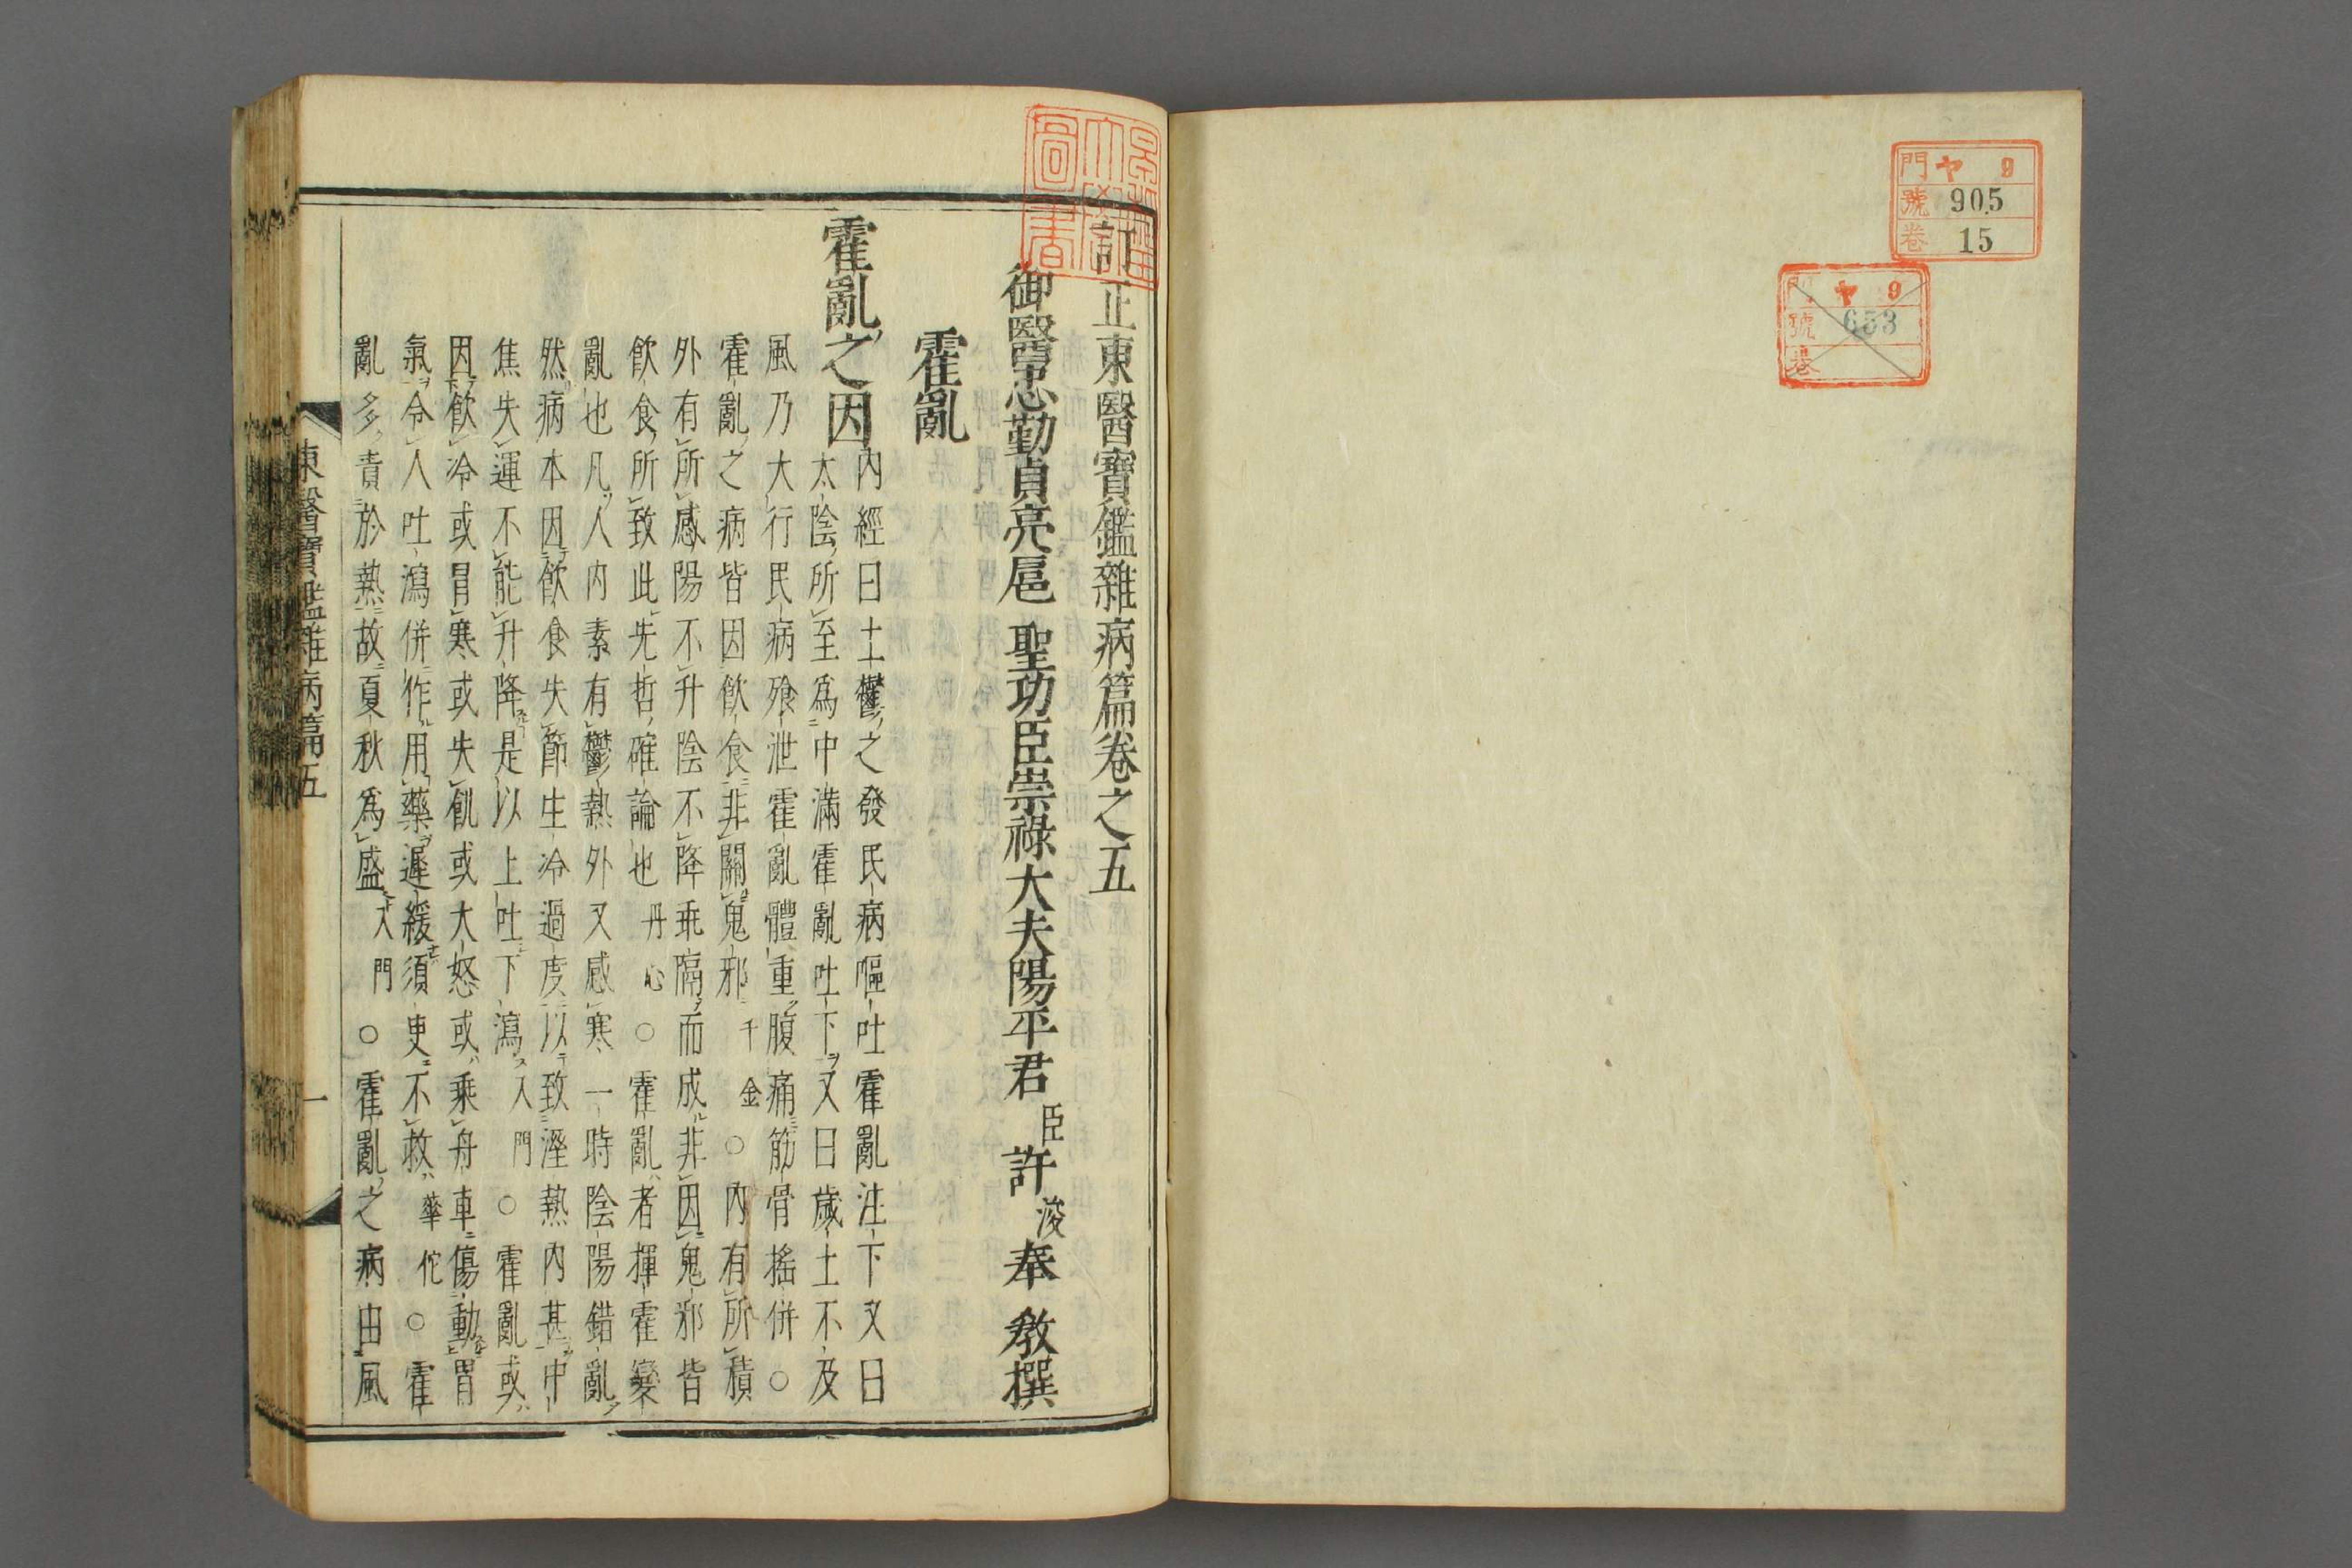 門 ヤ 9
號 905
卷 15
門 ヤ 9
號 653
卷
訂正東醫寶鑑雜病篇卷之五
御醫忠勤貞亮扈 聖功臣崇祿大夫陽平君 臣 許 浚 奉 教撰
霍亂
霍亂之因 內經曰土鬱之發民病嘔吐霍亂注下又曰
太陰所至爲中滿霍亂吐下又曰歲土不及
風乃大行民病飱泄霍亂體重腹痛筋骨搖併○
霍亂之病皆因飮食非關鬼邪 千金○內有所積
外有所感陽不升陰不降乖隔而成非因鬼邪皆
飮食所致此先哲確論也 丹心○霍亂者揮霍變
亂也凡人內素有鬱熱外又感寒一時陰陽錯亂
然病本因飮食失節生冷過度以致溼熱內甚中
焦失運不能升降是以上吐下瀉 入門○霍亂或
因飮冷或冐寒或失飢或大怒或乘舟車傷動胃
氣令人吐瀉併作用藥遲緩須臾不救 華佗○霍
亂多責於熱故夏秋爲盛 入門○霍亂之病由風
東醫寶鑑雜病篇五
一